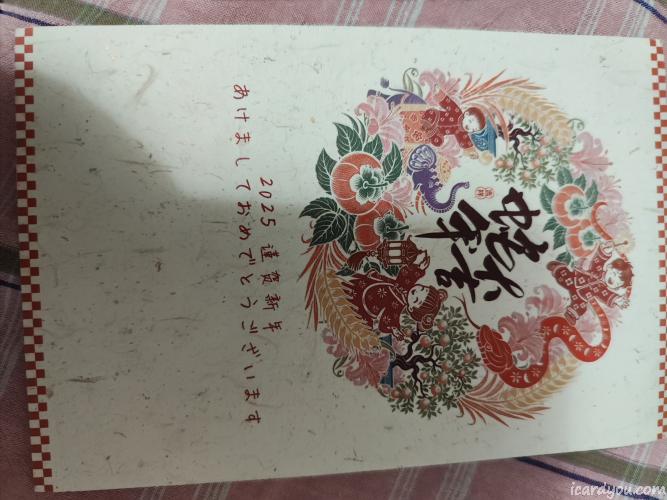 蛇年大吉
2025 謹賀新年
あけましておめでとうございます
icardyou.com